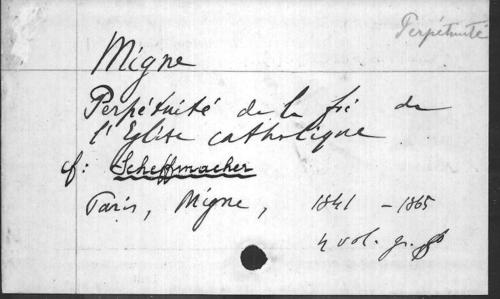 Perpétuité
Migne
Perpétuité de la foi de
l'Eglise catholique
cf: Scheffmacher
Paris, Migne, 1841 - 1865
4 vol. gr. 8°